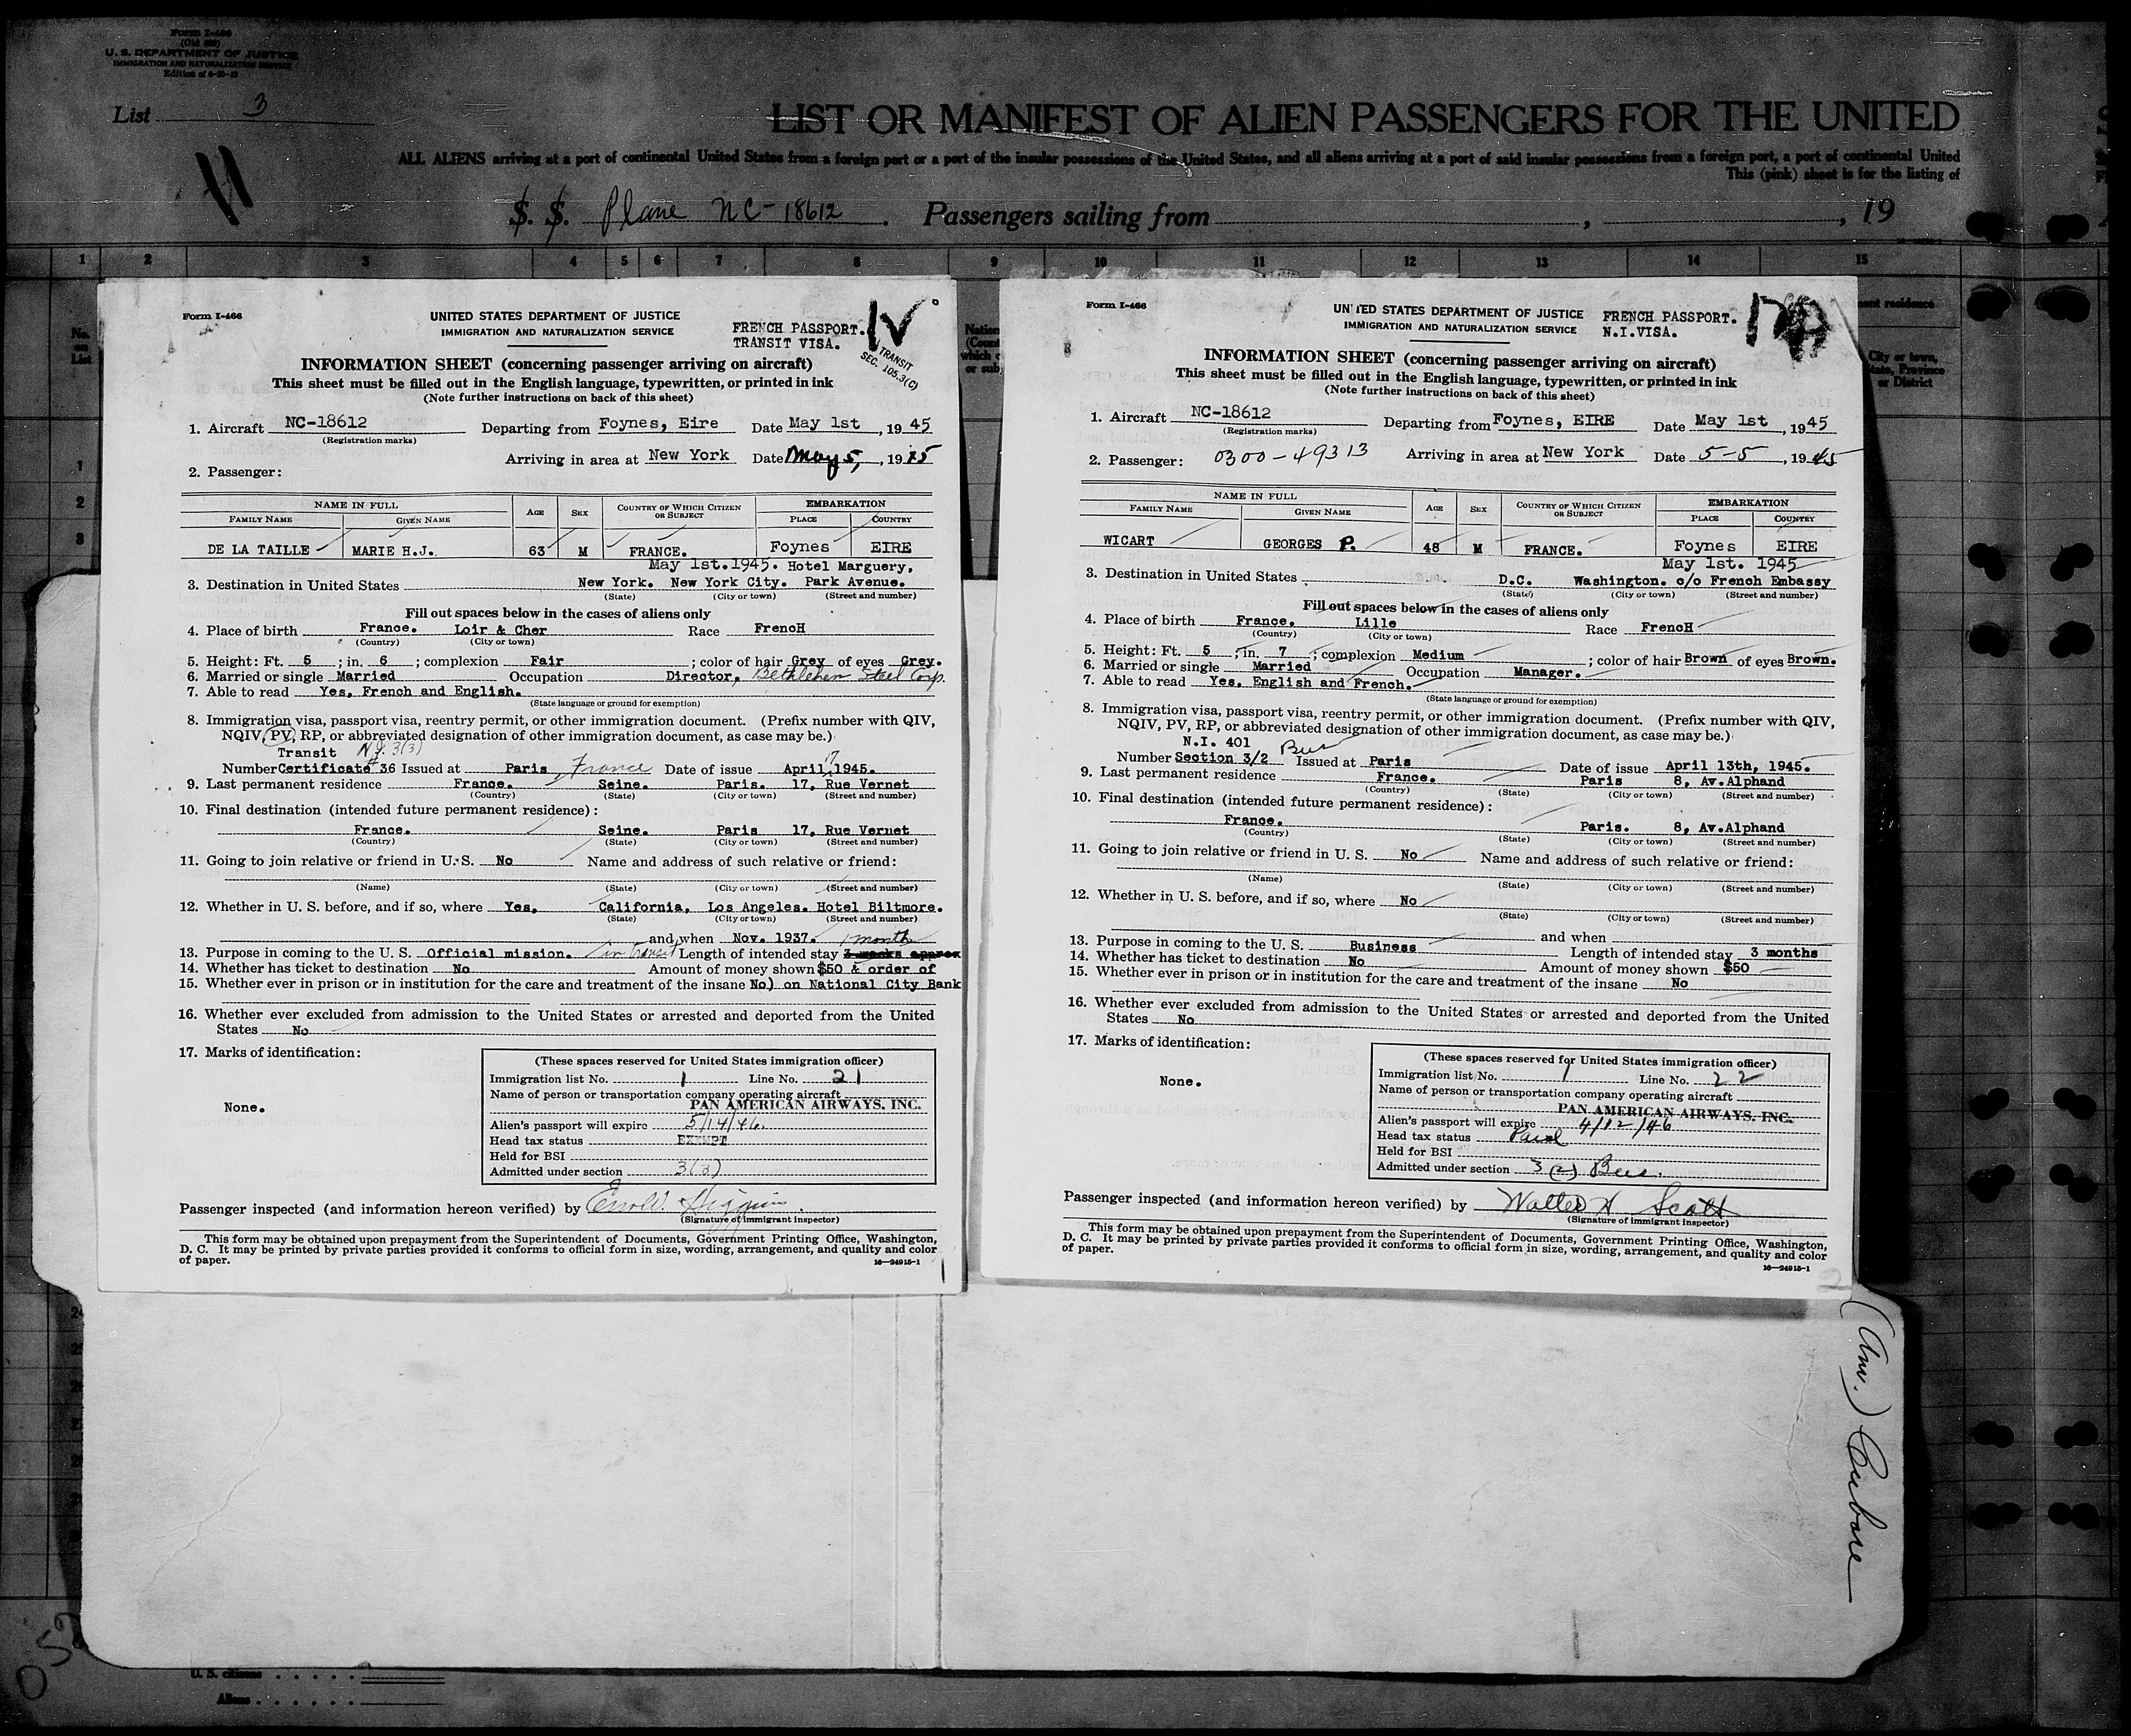 Form I-466
(Old 500)
U. S. DEPARTMENT OF JUSTICE
IMMIGRATION AND NATURALIZATION SERVICE
List 3
LIST OR MANIFEST OF ALIEN PASSENGERS FOR THE UNITED
ALL ALIENS arriving at a port of continental United States from a foreign port or a port of the insular possessions of the United States, and all aliens arriving at a port of said insular possessions from a foreign port, a port of continental United
This (pink) sheet is for the listing of
S. S. Plane NC-18612. Passengers sailing from , , 19
1 2 3 4 5 6 7 8 9 10 11 12 13 14 15
No. on List
Form I-466
UNITED STATES DEPARTMENT OF JUSTICE
IMMIGRATION AND NATURALIZATION SERVICE
FRENCH PASSPORT.
TRANSIT VISA.
TRANSIT
SEC. 105.3(C)
INFORMATION SHEET (concerning passenger arriving on aircraft)
This sheet must be filled out in the English language, typewritten, or printed in ink
(Note further instructions on back of this sheet)
1. Aircraft NC-18612 Departing from Foynes, Eire Date May 1st , 1945
(Registration marks)
Arriving in area at New York Date May 5, , 1945
2. Passenger:
NAME IN FULL AGE SEX COUNTRY OF WHICH CITIZEN OR SUBJECT EMBARKATION
FAMILY NAME GIVEN NAME PLACE COUNTRY
DE LA TAILLE MARIE H.J. 63 M FRANCE. Foynes EIRE
May 1st.1945. Hotel Marguery,
3. Destination in United States New York. New York City. Park Avenue.
(State) (City or town) (Street and number)
Fill out spaces below in the cases of aliens only
4. Place of birth France. Loir & Cher Race FrencH
(Country) (City or town)
5. Height: Ft. 5 ; in. 6 ; complexion Fair ; color of hair Grey of eyes Grey.
6. Married or single Married Occupation Director, Bethlehem Steel Corp.
7. Able to read Yes, French and English.
(State language or ground for exemption)
8. Immigration visa, passport visa, reentry permit, or other immigration document. (Prefix number with QIV,
NQIV, PV, RP, or abbreviated designation of other immigration document, as case may be.)
Transit N.I. 3(3)
Number Certificate #36 Issued at Paris, France Date of issue April 17, 1945.
9. Last permanent residence France. Seine. Paris. 17, Rue Vernet
(Country) (State) (City or town) (Street and number)
10. Final destination (intended future permanent residence):
France. Seine. Paris 17, Rue Vernet
(Country) (State) (City or town) (Street and number)
11. Going to join relative or friend in U. S. No Name and address of such relative or friend:
(Name) (State) (City or town) (Street and number)
12. Whether in U. S. before, and if so, where Yes, California, Los Angeles. Hotel Biltmore.
(State) (City or town) (Street and number)
and when Nov. 1937. 1 month
13. Purpose in coming to the U. S. Official mission. in transit Length of intended stay 3 weeks approx
14. Whether has ticket to destination No Amount of money shown $50 & order of
15. Whether ever in prison or in institution for the care and treatment of the insane No) on National City Bank
16. Whether ever excluded from admission to the United States or arrested and deported from the United
States No
17. Marks of identification:
None.
(These spaces reserved for United States immigration officer)
Immigration list No. 1 Line No. 21
Name of person or transportation company operating aircraft
PAN AMERICAN AIRWAYS, INC.
Alien's passport will expire 5/14/46.
Head tax status EXEMPT
Held for BSI
Admitted under section 3(3)
Passenger inspected (and information hereon verified) by
(Signature of immigrant inspector)
This form may be obtained upon prepayment from the Superintendent of Documents, Government Printing Office, Washington,
D. C. It may be printed by private parties provided it conforms to official form in size, wording, arrangement, and quality and color
of paper.
16—24915-1
Form I-466
UNITED STATES DEPARTMENT OF JUSTICE
IMMIGRATION AND NATURALIZATION SERVICE
FRENCH PASSPORT.
N.I.VISA.
INFORMATION SHEET (concerning passenger arriving on aircraft)
This sheet must be filled out in the English language, typewritten, or printed in ink
(Note further instructions on back of this sheet)
1. Aircraft NC-18612 Departing from Foynes, EIRE Date May 1st , 1945
(Registration marks)
2. Passenger: 0300-49313 Arriving in area at New York Date 5-5 , 1945
NAME IN FULL AGE SEX COUNTRY OF WHICH CITIZEN OR SUBJECT EMBARKATION
FAMILY NAME GIVEN NAME PLACE COUNTRY
WICART GEORGES P. 48 M FRANCE. Foynes EIRE
May 1st. 1945
3. Destination in United States D.C. Washington. c/o French Embassy
(State) (City or town) (Street and number)
Fill out spaces below in the cases of aliens only
4. Place of birth France. Lille Race FrencH
(Country) (City or town)
5. Height: Ft. 5 ; in. 7 ; complexion Medium ; color of hair Brown of eyes Brown.
6. Married or single Married Occupation Manager.
7. Able to read Yes. English and French.
(State language or ground for exemption)
8. Immigration visa, passport visa, reentry permit, or other immigration document. (Prefix number with QIV,
NQIV, PV, RP, or abbreviated designation of other immigration document, as case may be.)
N.I. 401 Bus
Number Section 3/2 Issued at Paris Date of issue April 13th, 1945.
9. Last permanent residence France. Paris 8, Av.Alphand
(Country) (State) (City or town) (Street and number)
10. Final destination (intended future permanent residence):
France. Paris. 8, Av.Alphand
(Country) (State) (City or town) (Street and number)
11. Going to join relative or friend in U. S. No Name and address of such relative or friend:
(Name) (State) (City or town) (Street and number)
12. Whether in U. S. before, and if so, where No
(State) (City or town) (Street and number)
and when
13. Purpose in coming to the U. S. Business Length of intended stay 3 months
14. Whether has ticket to destination No Amount of money shown $50
15. Whether ever in prison or in institution for the care and treatment of the insane No
16. Whether ever excluded from admission to the United States or arrested and deported from the United
States No
17. Marks of identification:
None.
(These spaces reserved for United States immigration officer)
Immigration list No. 1 Line No. 22
Name of person or transportation company operating aircraft
PAN AMERICAN AIRWAYS, INC.
Alien's passport will expire 4/12/46
Head tax status Paid
Held for BSI
Admitted under section 3(2) Bus.
Passenger inspected (and information hereon verified) by Walter H Scott
(Signature of immigrant inspector)
This form may be obtained upon prepayment from the Superintendent of Documents, Government Printing Office, Washington,
D. C. It may be printed by private parties provided it conforms to official form in size, wording, arrangement, and quality and color
of paper.
16—24915-1
City or town, State, Province or District
U. S. citizens
Aliens